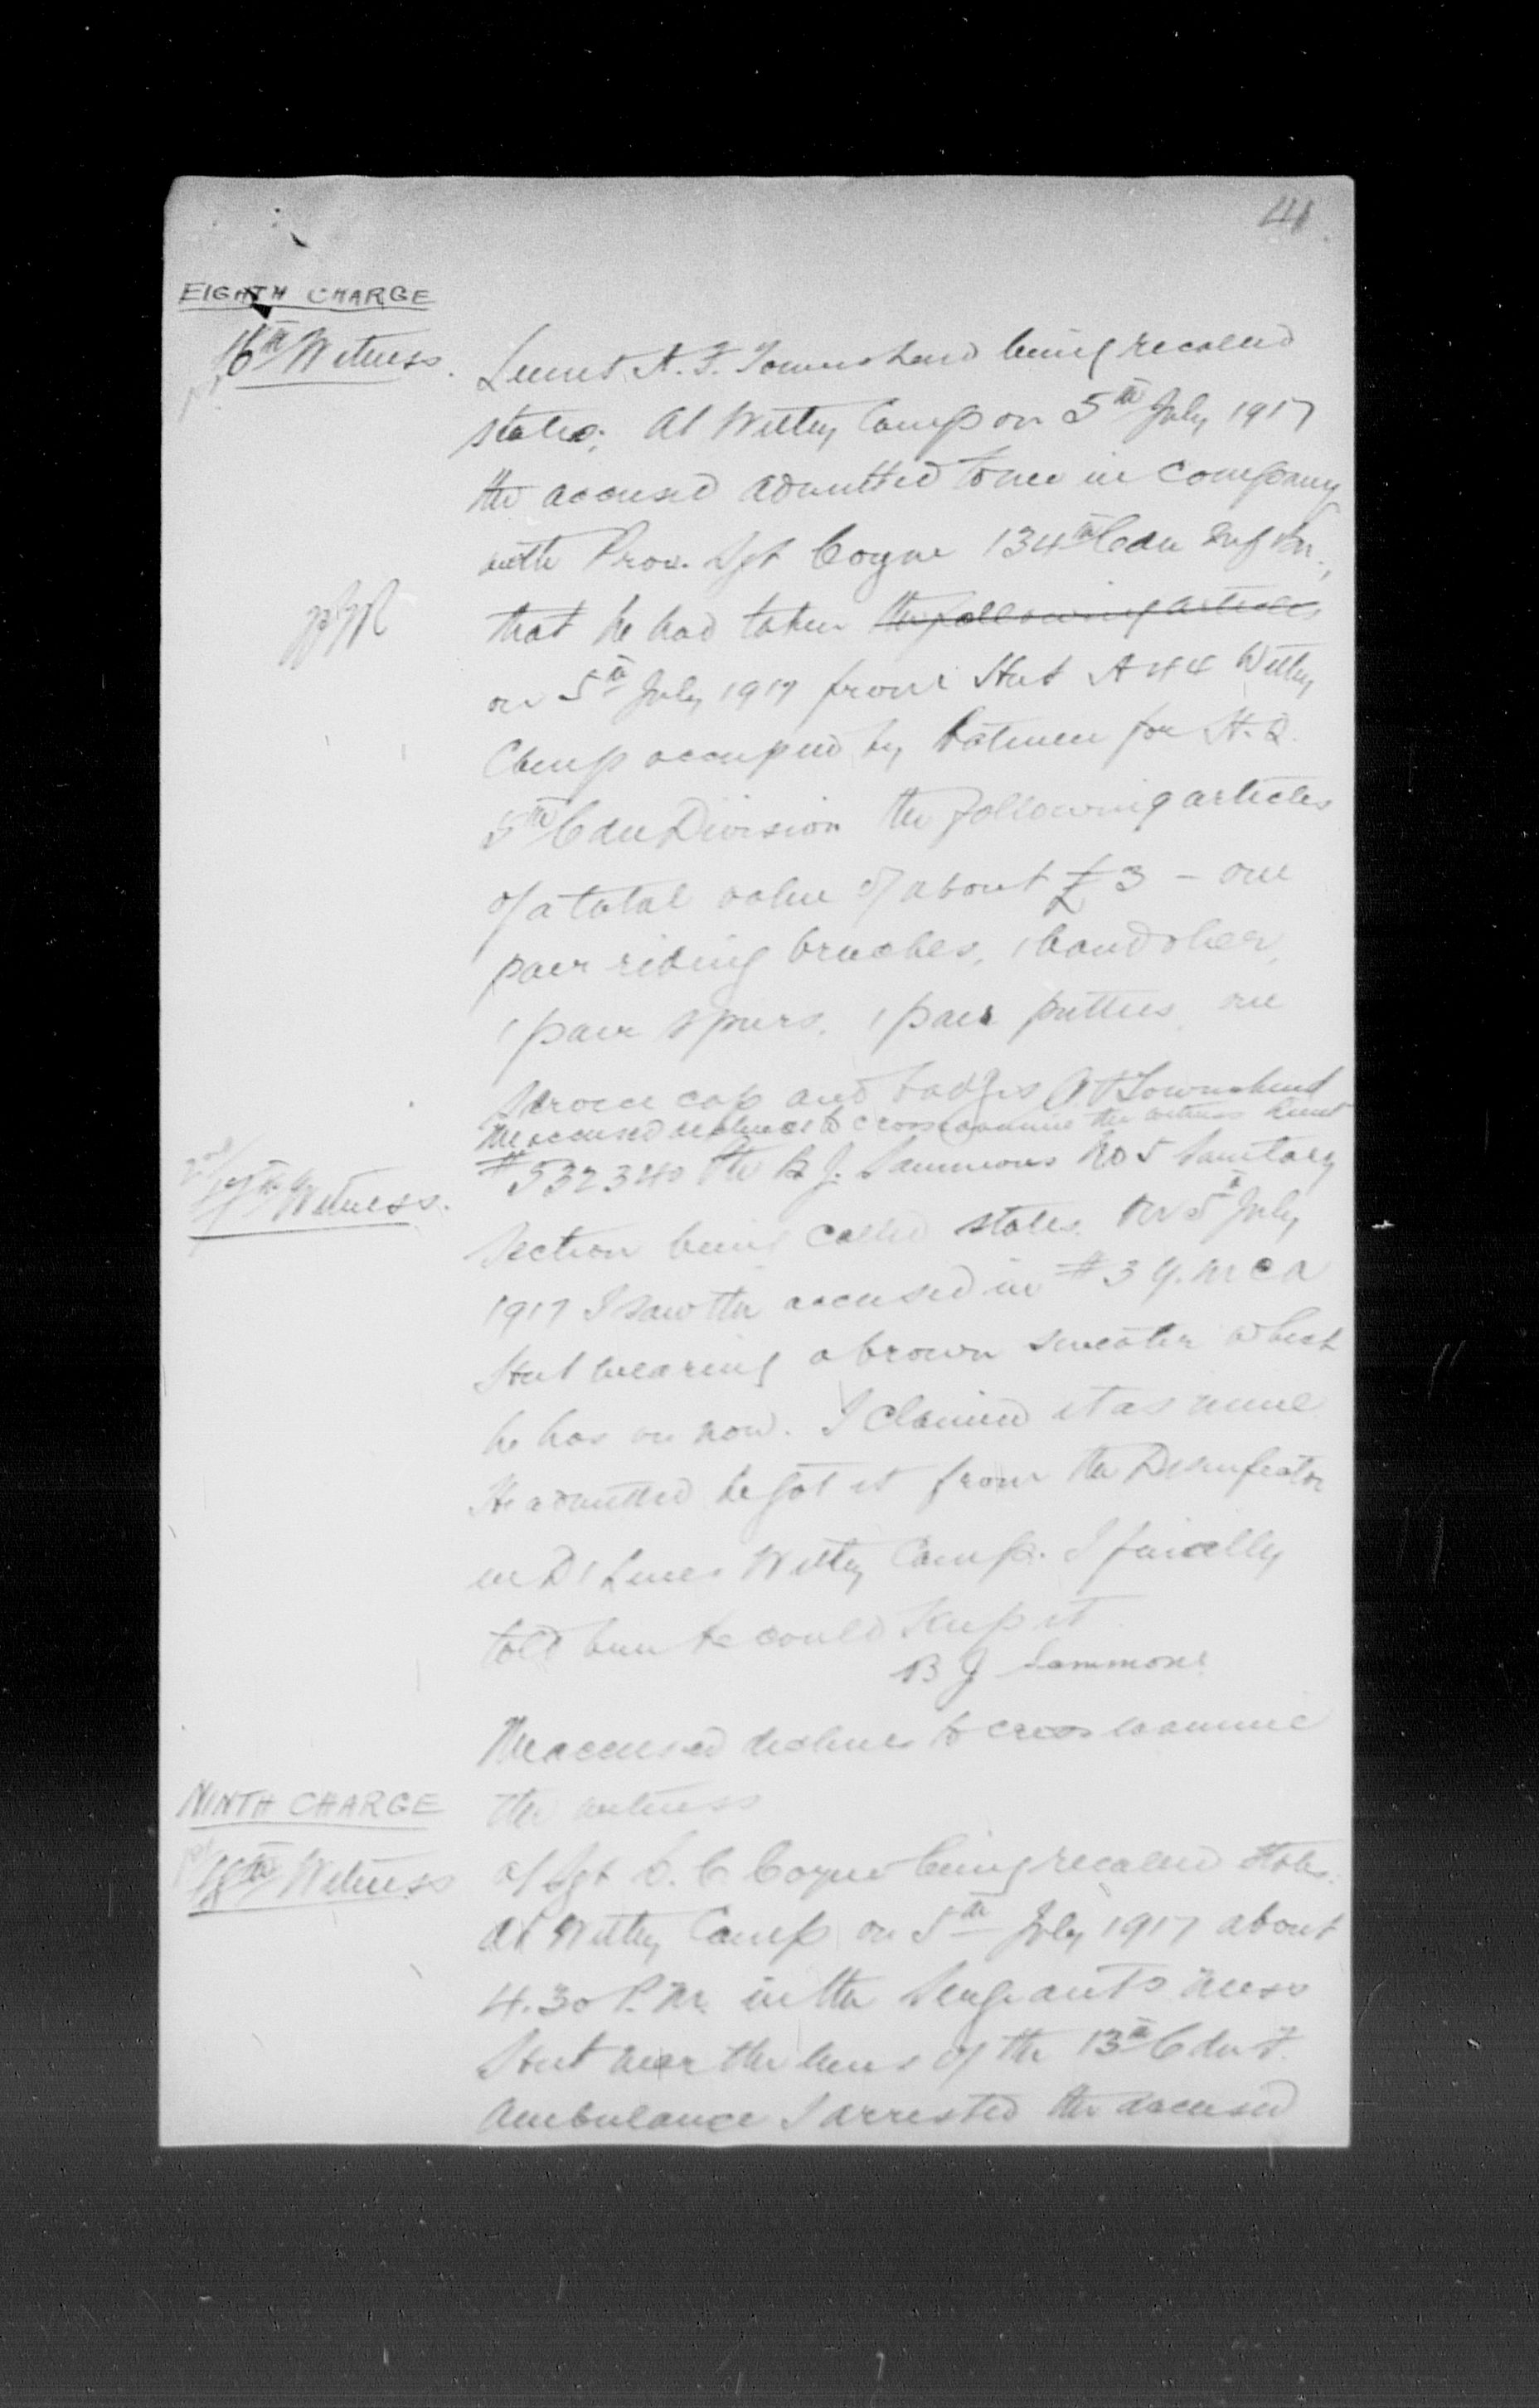 41
EIGHTH CHARGE
16th Witness.
Lieut A. F. Townshend being recalled
states: At Witley Camp on 5th July 1917
the accused admitted to me in company
with Prov. Sgt Coyne 134th Cdn Inf Bn.,
that he had taken the following articles
on 5th July 1917 from Hut A 44 Witley
Camp occupied by batmen for H.Q.
5th Cdn Division the following articles
of a total value of about £3 - one
pair riding breeches, 1 bandolier,
1 pair spurs, 1 pair puttees, one
service cap and badges A F Townshend
The accused declines to cross examine the witness Lieut
17th Witness.
#532340 Pte B J. Sammons No 5 Sanitary
Section being called states. On 5th July
1917 I saw the accused in #3 Y.M.C.A
Hut wearing a brown sweater which
he has on now. I claimed it as mine
He admitted he got it from the Disinfector
in D1 Lines Witley Camp. I finally
told him he could keep it.
B J Sammons
The accused declines to cross examine
the witness
NINTH CHARGE
18th Witness
a/Sgt D. C. Coyne being recalled states.
At Witley Camp on 5th July 1917 about
4.30 P.M. in the Sergeants mess
Hut near the lines of the 13th Cdn F.
Ambulance I arrested the accused